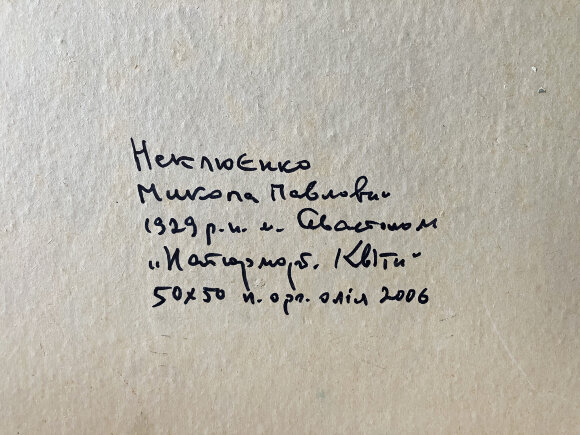 Неклюєнко
Микола Павлович
1929 р.н. м. Севастополь
„Натюрморт. Квіти"
50х50 к. орг. олія 2006